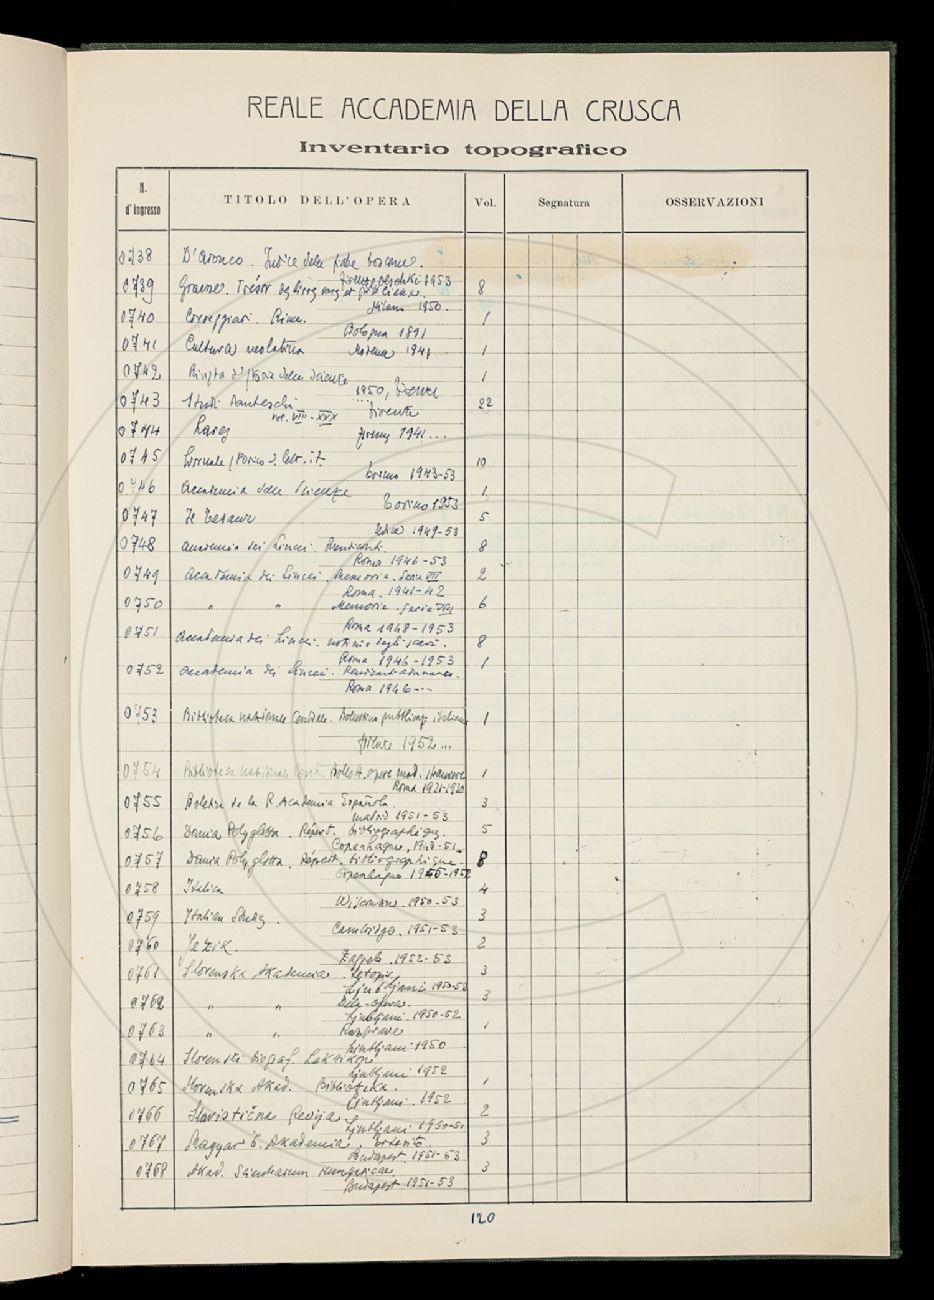 REALE ACCADEMIA DELLA CRUSCA
Inventario topografico
N. d'ingresso TITOLO DELL'OPERA Vol. Segnatura OSSERVAZIONI
0738 D'Aronco. Indice delle fiabe toscane.
Firenze Olschki 1953
0739 Graesse. Trésor 8
Milano 1950.
0740 Correggiari. Rime. 1
Bologna 1891
0741 Cultura neolatina 1
Modena 1941
0742 Rivista di storia delle scienze 1
1950, Firenze
0743 Studi danteschi 22
vol. VIII - XXX Firenze
0744 Lares
Firenze 1941...
0745 Giornale storico d. lett. it. 10
Torino 1943-53
0746 Accademia delle Scienze 1
Torino 1953
0747 Il Tesaur 5
Udine 1949-53
0748 Accademia dei Lincei. Rendiconti. 8
Roma 1946-53
0749 Accademia dei Lincei. Memorie. Serie VII 2
Roma. 1941-42
0750 " " Memorie. Serie VIII 6
Roma 1948-1953
0751 Accademia dei Lincei. notizie degli scavi. 8
Roma 1946-1953
0752 Accademia dei Lincei. Rendiconti adunanze. 1
Roma 1946---
0753 Biblioteca nazionale Centrale. Bollettino pubblicaz. italiane 1
Firenze 1952...
0754 Biblioteca nazionale Cent. Bollett. opere mod. straniere 1
Roma 1921-1930
0755 Boletin de la R. Academia Española. 3
Madrid 1951-53
0756 Dania Polyglotta. Répert. bibliographique. 5
Copenhague,
0757 Dania Polyglotta. Répert. bibliographique. 8
Copenhague 1946-1952
0758 Italica 4
Wisconsin. 1950-53
0759 Italian Studies. 3
Cambridge. 1951-53
0760 Jezik. 2
Zagreb. 1952-53
0761 Slovenska Akademia. Letopis. 3
Ljubljani 1950-52
0762 " " Dela-opera. 3
Ljubljani. 1950-52
0763 " " Razprave 1
Ljubljani 1950
0764 Slovenski biograf. Leksikon
Ljubljani 1952
0765 Slovenska Akad. Biblioteka. 1
Ljubljani. 1952
0766 Slavistična Revija 2
Ljubljani 1950-51
0767 Magyar T. Akademiai. Értesitö. 3
Budapest. 1951-53
0768 Akad. Scientiarum Hungaricae. 3
Budapest 1951-53
120